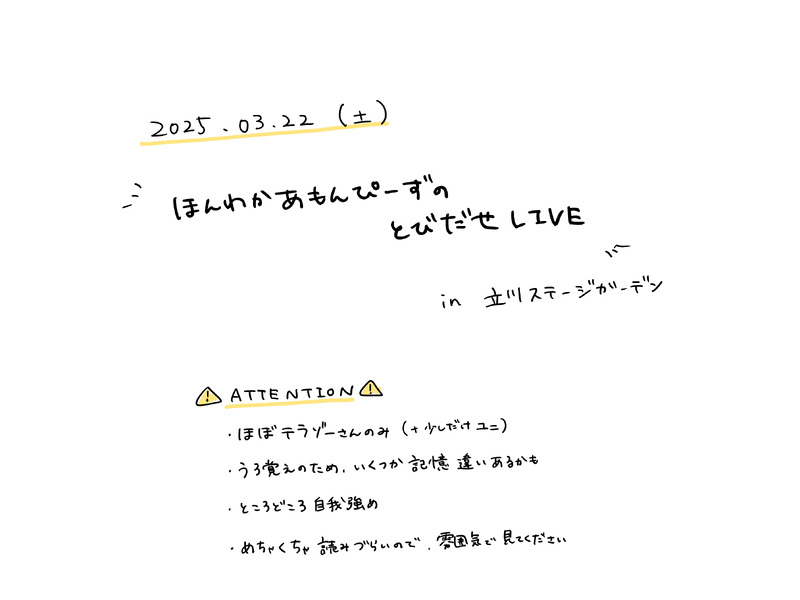 2025.03.22 (土)
ほんわかあもんぴーずの
とびだせ LIVE
in 立川ステージガーデン
ATTENTION
・ほぼテラゾーさんのみ (+少しだけユニ)
・うろ覚えのため、いくつか記憶違いあるかも
・ところどころ自我強め
・めちゃくちゃ読みづらいので、雰囲気で見てください